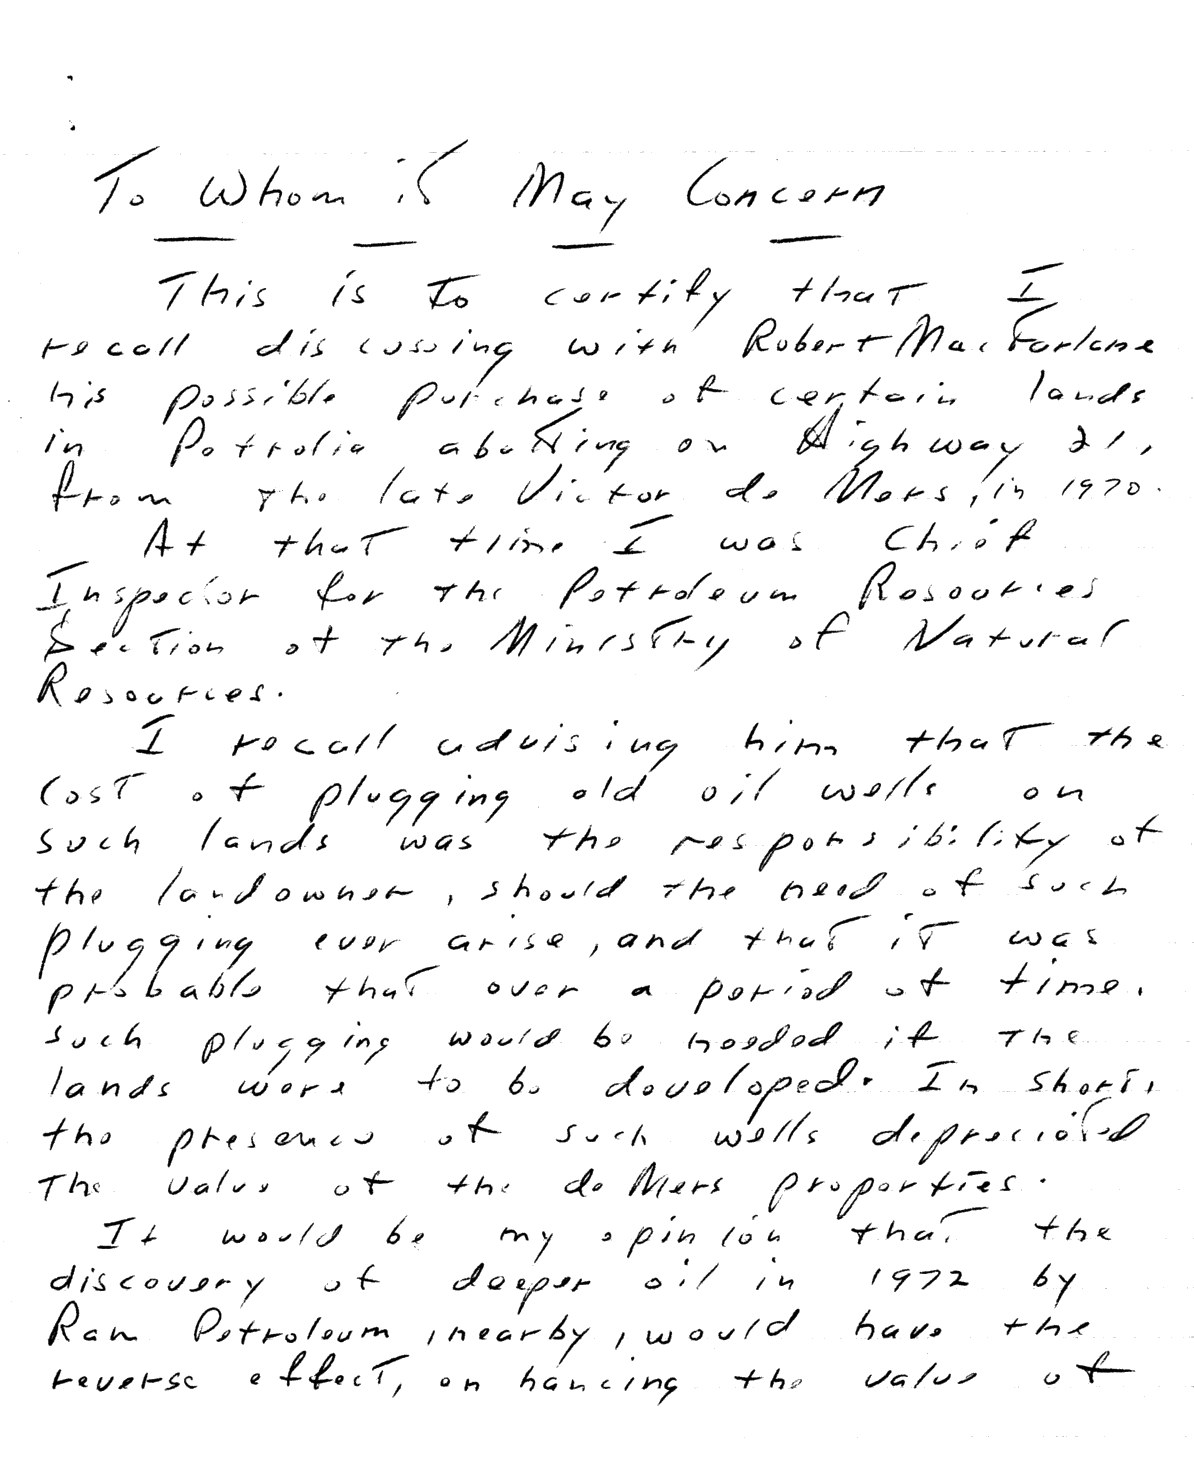 To Whom it May Concern
This is to certify that I
recall discussing with Robert MacFarlane
his possible purchase of certain lands
in Petrolia abutting on Highway 21,
from the late Victor de Mers, in 1970.
At that time I was Chief
Inspector for the Petroleum Resources
Section of the Ministry of Natural
Resources.
I recall advising him that the
cost of plugging old oil wells on
such lands was the responsibility of
the landowner, should the need of such
plugging ever arise, and that it was
probable that over a period of time,
such plugging would be needed if the
lands were to be developed. In short,
the presence of such wells depreciated
the value of the de Mers properties.
It would be my opinion that the
discovery of deeper oil in 1972 by
Ram Petroleum, nearby, would have the
reverse effect, enhancing the value of